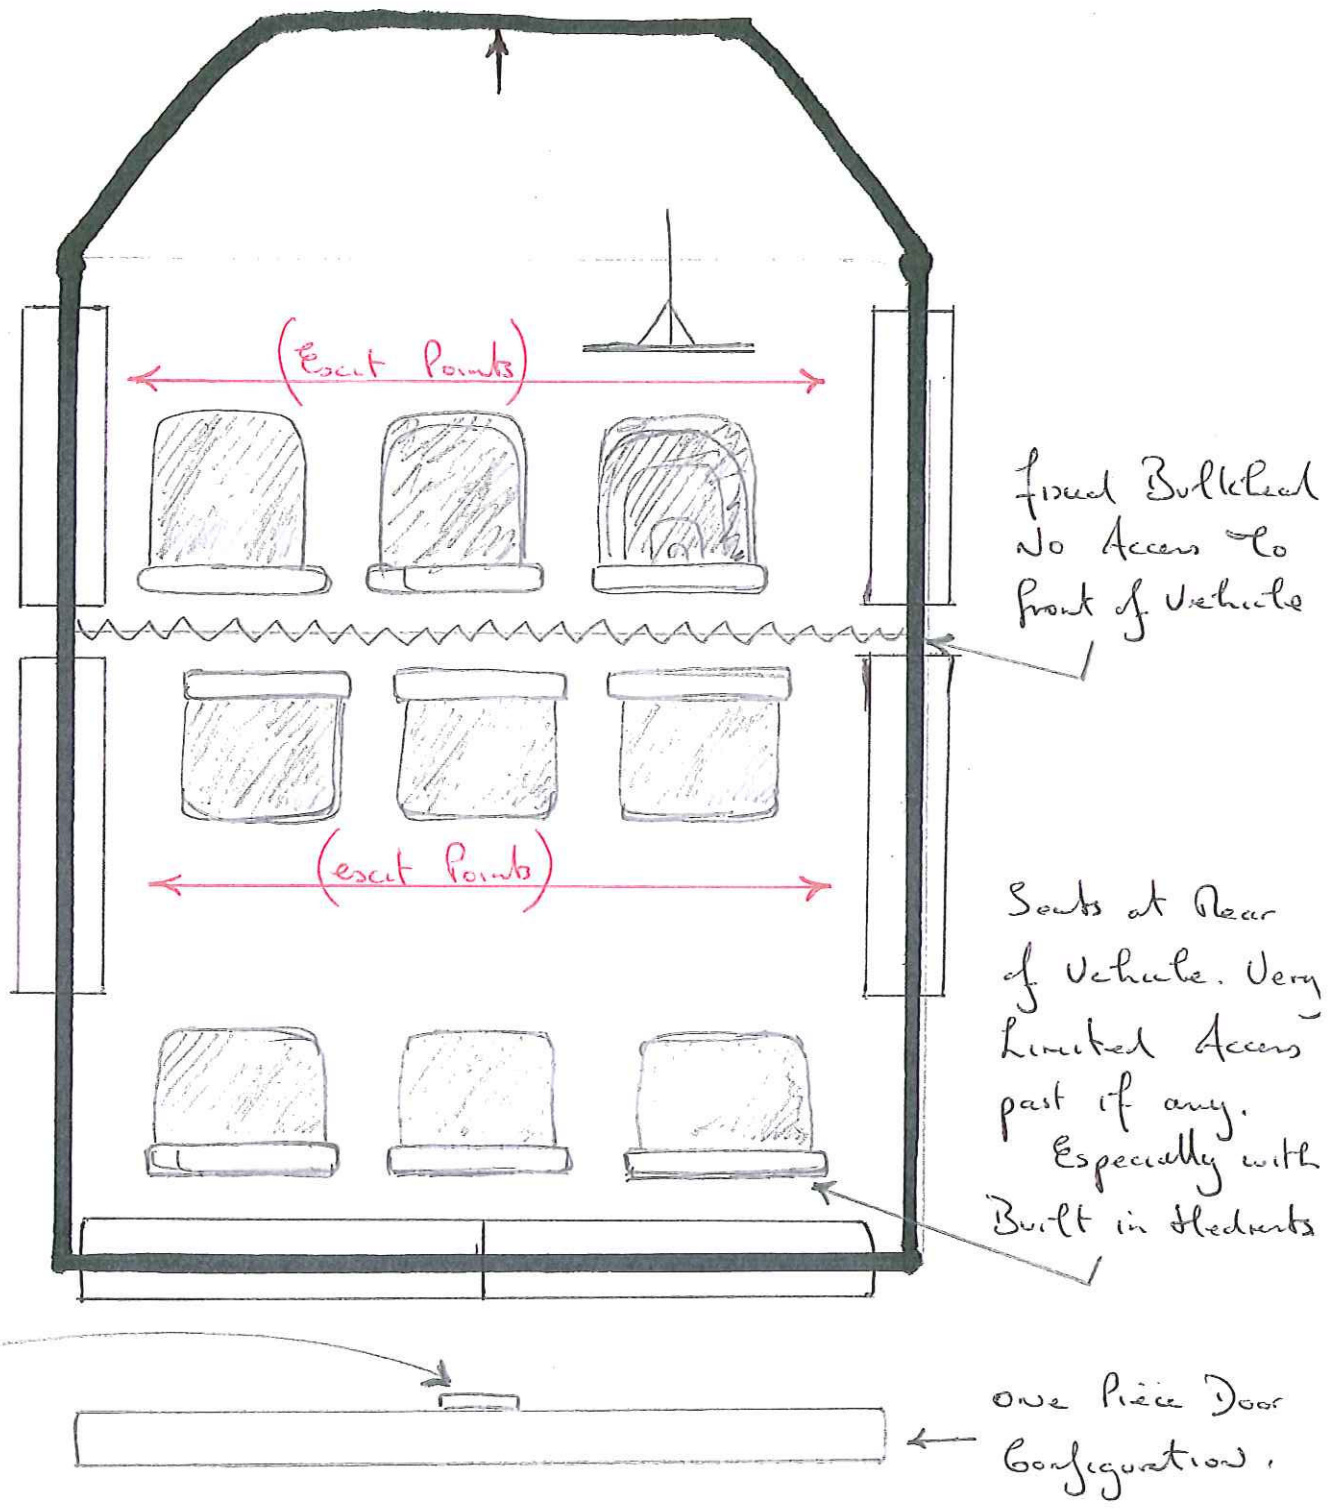 (Exit Points)
fixed Bulkhead
No Access To
front of Vehicle
(exit Points)
Seats at Rear
of Vehicle. Very
Limited Access
past if any.
Especially with
Built in Hedrests
one Piece Door
Configuration.